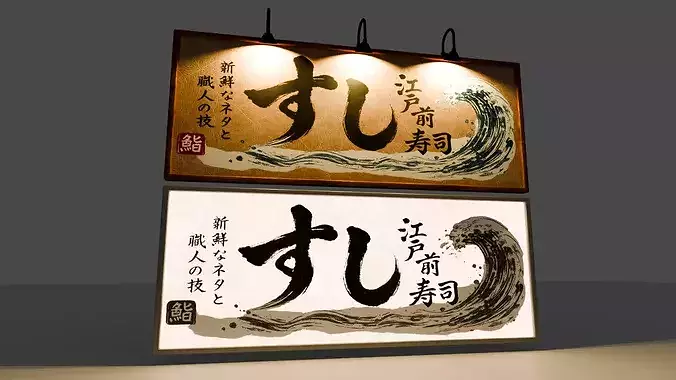 新鮮なネタと
職人の技
鮨
すし
江戸前
寿司
新鮮なネタと
職人の技
鮨
すし
江戸前
寿司